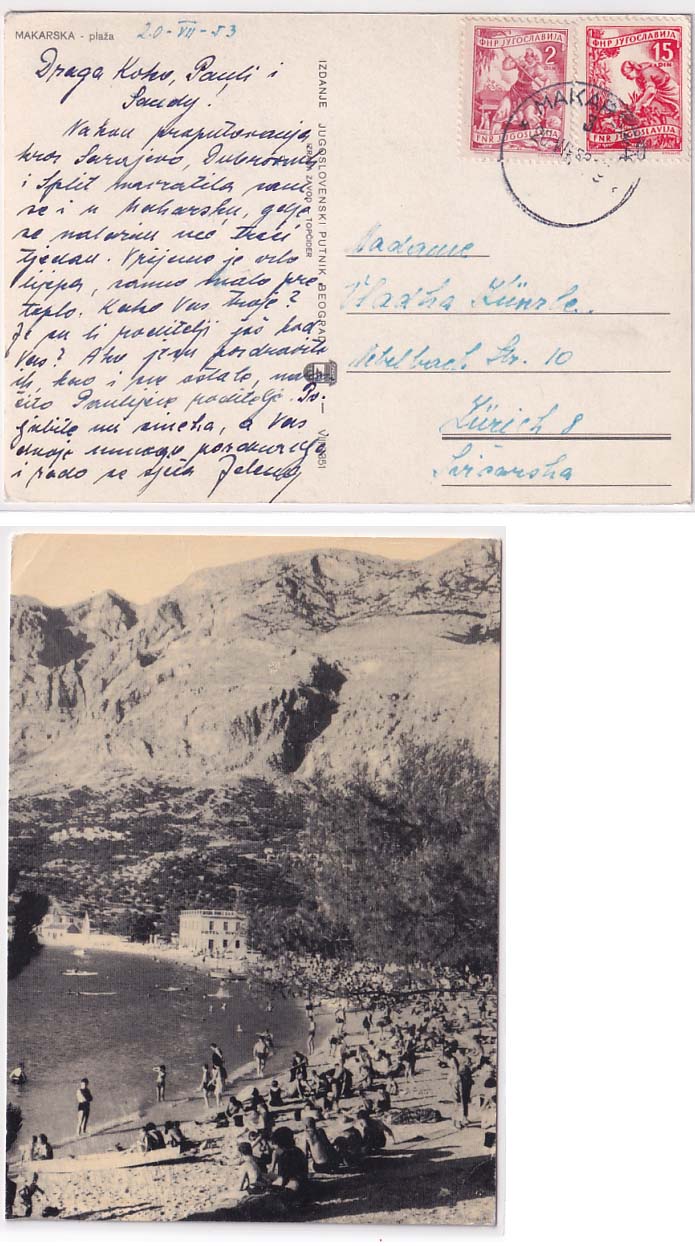 MAKARSKA - plaža
20-VII-53
Draga Koko, Pauli i
Sandy!
Nakon proputovanja
kroz Sarajevo, Dubrovnik
i Split navratila sam
se i u Makarsku, gdje
se nalazim već treći
tjedan. Vrijeme je vrlo
lijepo, samo malo pre
toplo. Kako Vas
Je su li roditelji još kod
Vas? Ako jesu pozdravite
ih, kao i sve ostale, naro
čito Paulijeve roditelje. Po
ljubite mi sineka, a Vas
mnogo pozdravlja
i rado se sjeća Jelena
IZDANJE JUGOSLOVENSKI PUTNIK, BEOGRAD
ZAVOD - TOPČIDER
VII 1951
ФНР ЈУГОСЛАВИЈА
2
DIN
FNR JUGOSLAVIJA
ФНР ЈУГОСЛАВИЈА
15
DIN
FNR JUGOSLAVIJA
MAKARSKA
Madame
Vladka Künzle
Nebelbach Str. 10
Zürich 8
Švicarska
HOTEL